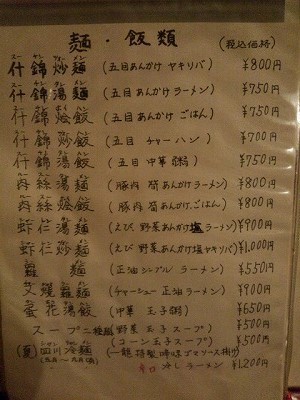 麺・飯類 (税込価格)
什錦炒麺 (五目あんかけ ヤキソバ) ¥800円
什錦湯麺 (五目あんかけ ラーメン) ¥750円
什錦燴飯 (五目あんかけ ごはん) ¥750円
什錦炒飯 (五目 チャーハン) ¥700円
什錦湯飯 (五目 中華粥) ¥750円
肉絲湯麺 (豚肉 筍あんかけラーメン) ¥800円
肉絲燴飯 (豚肉 筍あんかけ、ごはん) ¥800円
蝦仁湯麺 (えび 野菜あんかけ塩ラーメン) ¥900円
蝦仁炒麺 (えび 野菜あんかけ塩ヤキソバ) ¥1,000円
麺 (正油シンプル ラーメン) ¥550円
(チャーシュー 正油 ラーメン) ¥900円
蛋花湯飯 (中華 玉子粥) ¥650円
スープ二種類 野菜玉子スープ) ¥500円
(コーン玉子スープ) ¥500円
(夏) 四川冷麺 (一龍特製 味ゴマソース掛け)
辛口 冷しラーメン ¥1,200円